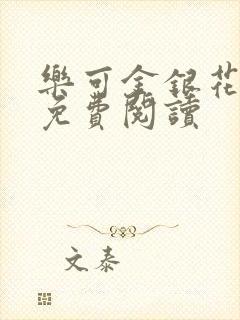 樂可金銀花
免費閱讀
文泰